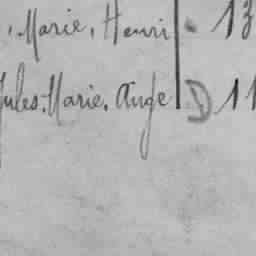 , Marie, Henri 13
Jules-Marie. Ange D 11